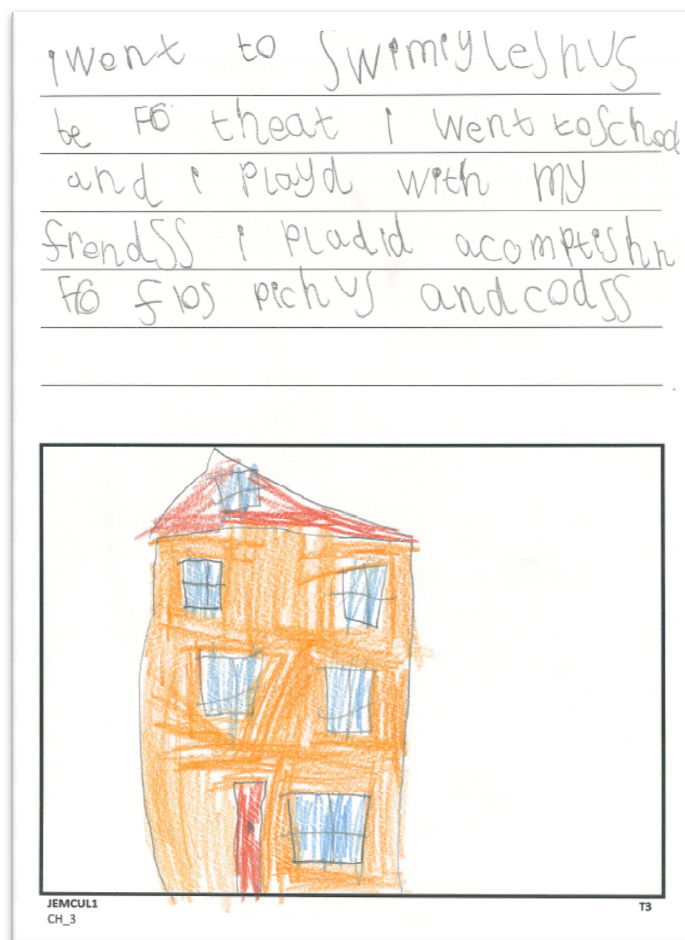 i went to swimiyleshus
be Fo theat i went toSchool
and i Playd with my
frendss i pladid acomptishn
Fo fios pichus andcodss
JEMCUL1
CH_3
T3